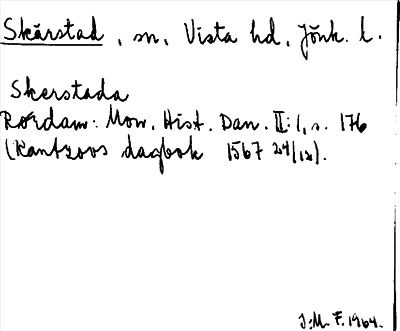 Skärstad, sn, Vista hd, Jönk. l.
Skerstada
Rørdam: Mon. Hist. Dan. II:1, s. 176
(Rantzovs dagbok 1567 24/12).
J.M. F. 1964.